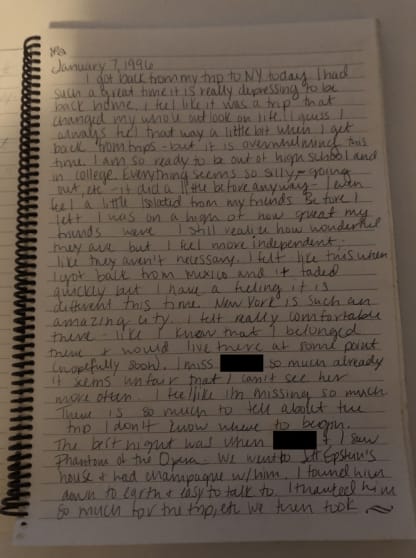 January 7, 1996
I got back from my trip to NY today. I had
such a great time it is really depressing to be
back home. I feel like it was a trip that
changed my whole out look on life. I guess I
always feel that way a little bit when I get
back from trips - but it is overwhelming this
time. I am so ready to be out of high school and
in college. Everything seems so silly - going
out, etc - it did a little before anyway - I even
feel a little isolated from my friends. Before I
left I was on a high of how great my
friends were. I still realize how wonderful
they are but I feel more independent -
like they aren't necessary. I felt like this when
I got back from Mexico and it faded
quickly but I have a feeling it is
different this time. New York is such an
amazing city. I felt really comfortable
there - like I know that I belonged
there + would live there at some point
(hopefully soon). I miss so much already
it seems unfair that I can't see her
more often. I feel like I'm missing so much
There is so much to tell about the
trip I don't know where to begin.
The best night was when + I saw
Phantom of the Opera. We went to Jeff Epstein's
house + had champagne w/him. I found him
down to earth + easy to talk to. I thanked him
so much for the trip, etc. We then took